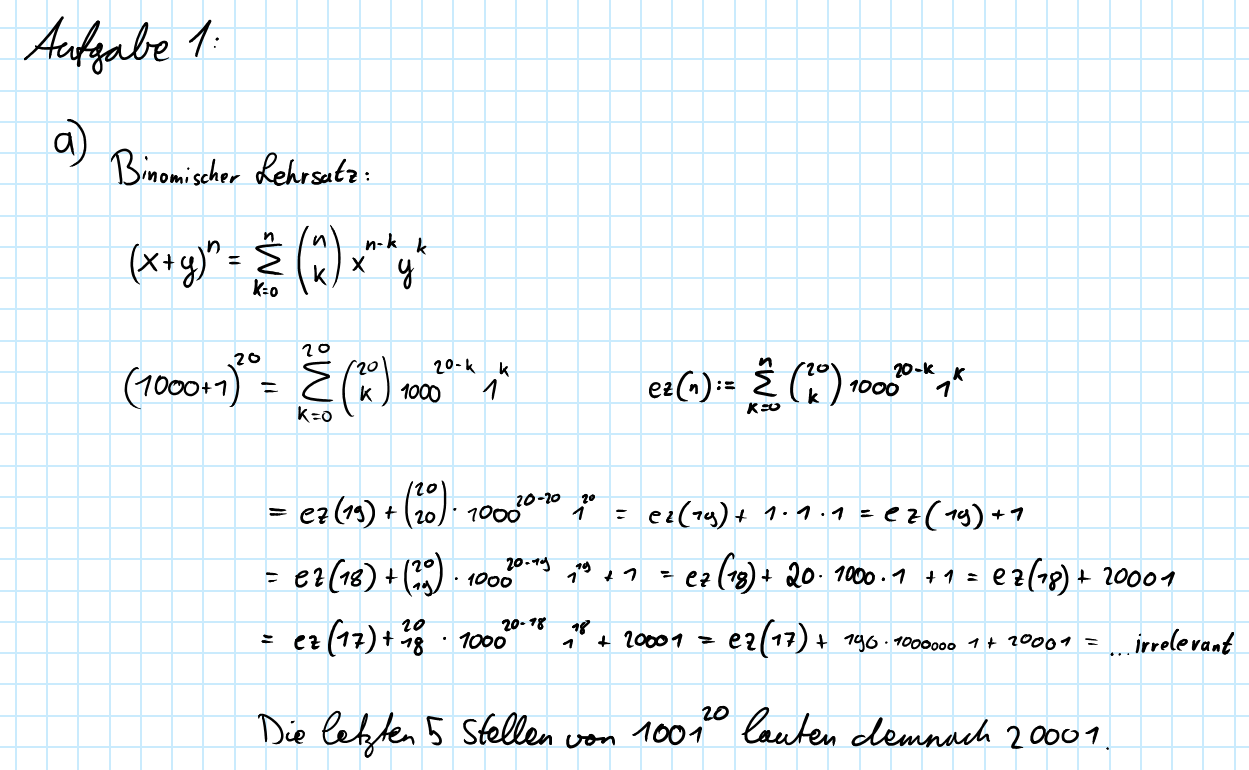 Aufgabe 1:
a)
Binomischer Lehrsatz:
(x+y)^n = ∑_{k=0}^{n} (n über k) x^{n-k} y^k
(1000+1)^{20} = ∑_{k=0}^{20} (20 über k) 1000^{20-k} 1^k    ez(n) := ∑_{k=0}^{n} (20 über k) 1000^{20-k} 1^k
= ez(19) + (20 über 20) · 1000^{20-20} 1^{20} = ez(19) + 1·1·1 = ez(19) + 1
= ez(18) + (20 über 19) · 1000^{20-19} 1^{19} + 1 = ez(18) + 20·1000·1 + 1 = ez(18) + 20001
= ez(17) + 20 18 · 1000^{20-18} 1^{18} + 20001 = ez(17) + 190·1000000 1 + 20001 = ... irrelevant
Die letzten 5 Stellen von 1001^{20} lauten demnach 20001.